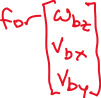 for [ω_bz
v_bx
v_by]